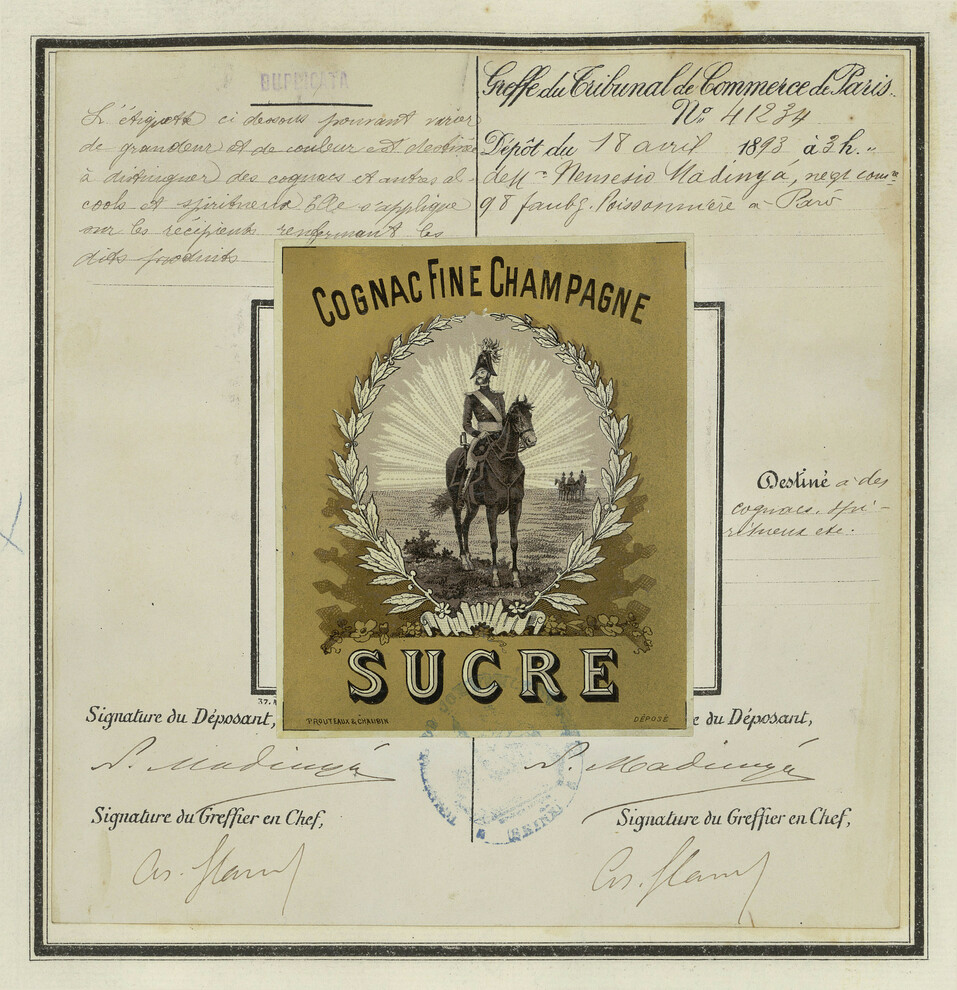 DUPLICATA
L'étiquette ci dessous pouvant varier
de grandeur et de couleur est destinée
à distinguer des cognacs et autres al-
cools et spiritueux Elle s'applique
sur les récipients renfermant les
dits produits
Greffe du Tribunal de Commerce de Paris.
No. 41234
Dépôt du 18 avril 1893 à 3h. "
de Mr Nemesio Madinyá, négt comre
98 faubg. Poissonnière à Paris
COGNAC FINE CHAMPAGNE
SUCRE
PROUTEAUX & CHAUBIN
DÉPOSÉ
Destiné à des
cognacs, spi-
ritueux etc.
37.
Signature du Déposant,
e du Déposant,
N. Madinyá
N. Madinyá
Signature du Greffier en Chef,
Signature du Greffier en Chef,
SEINE